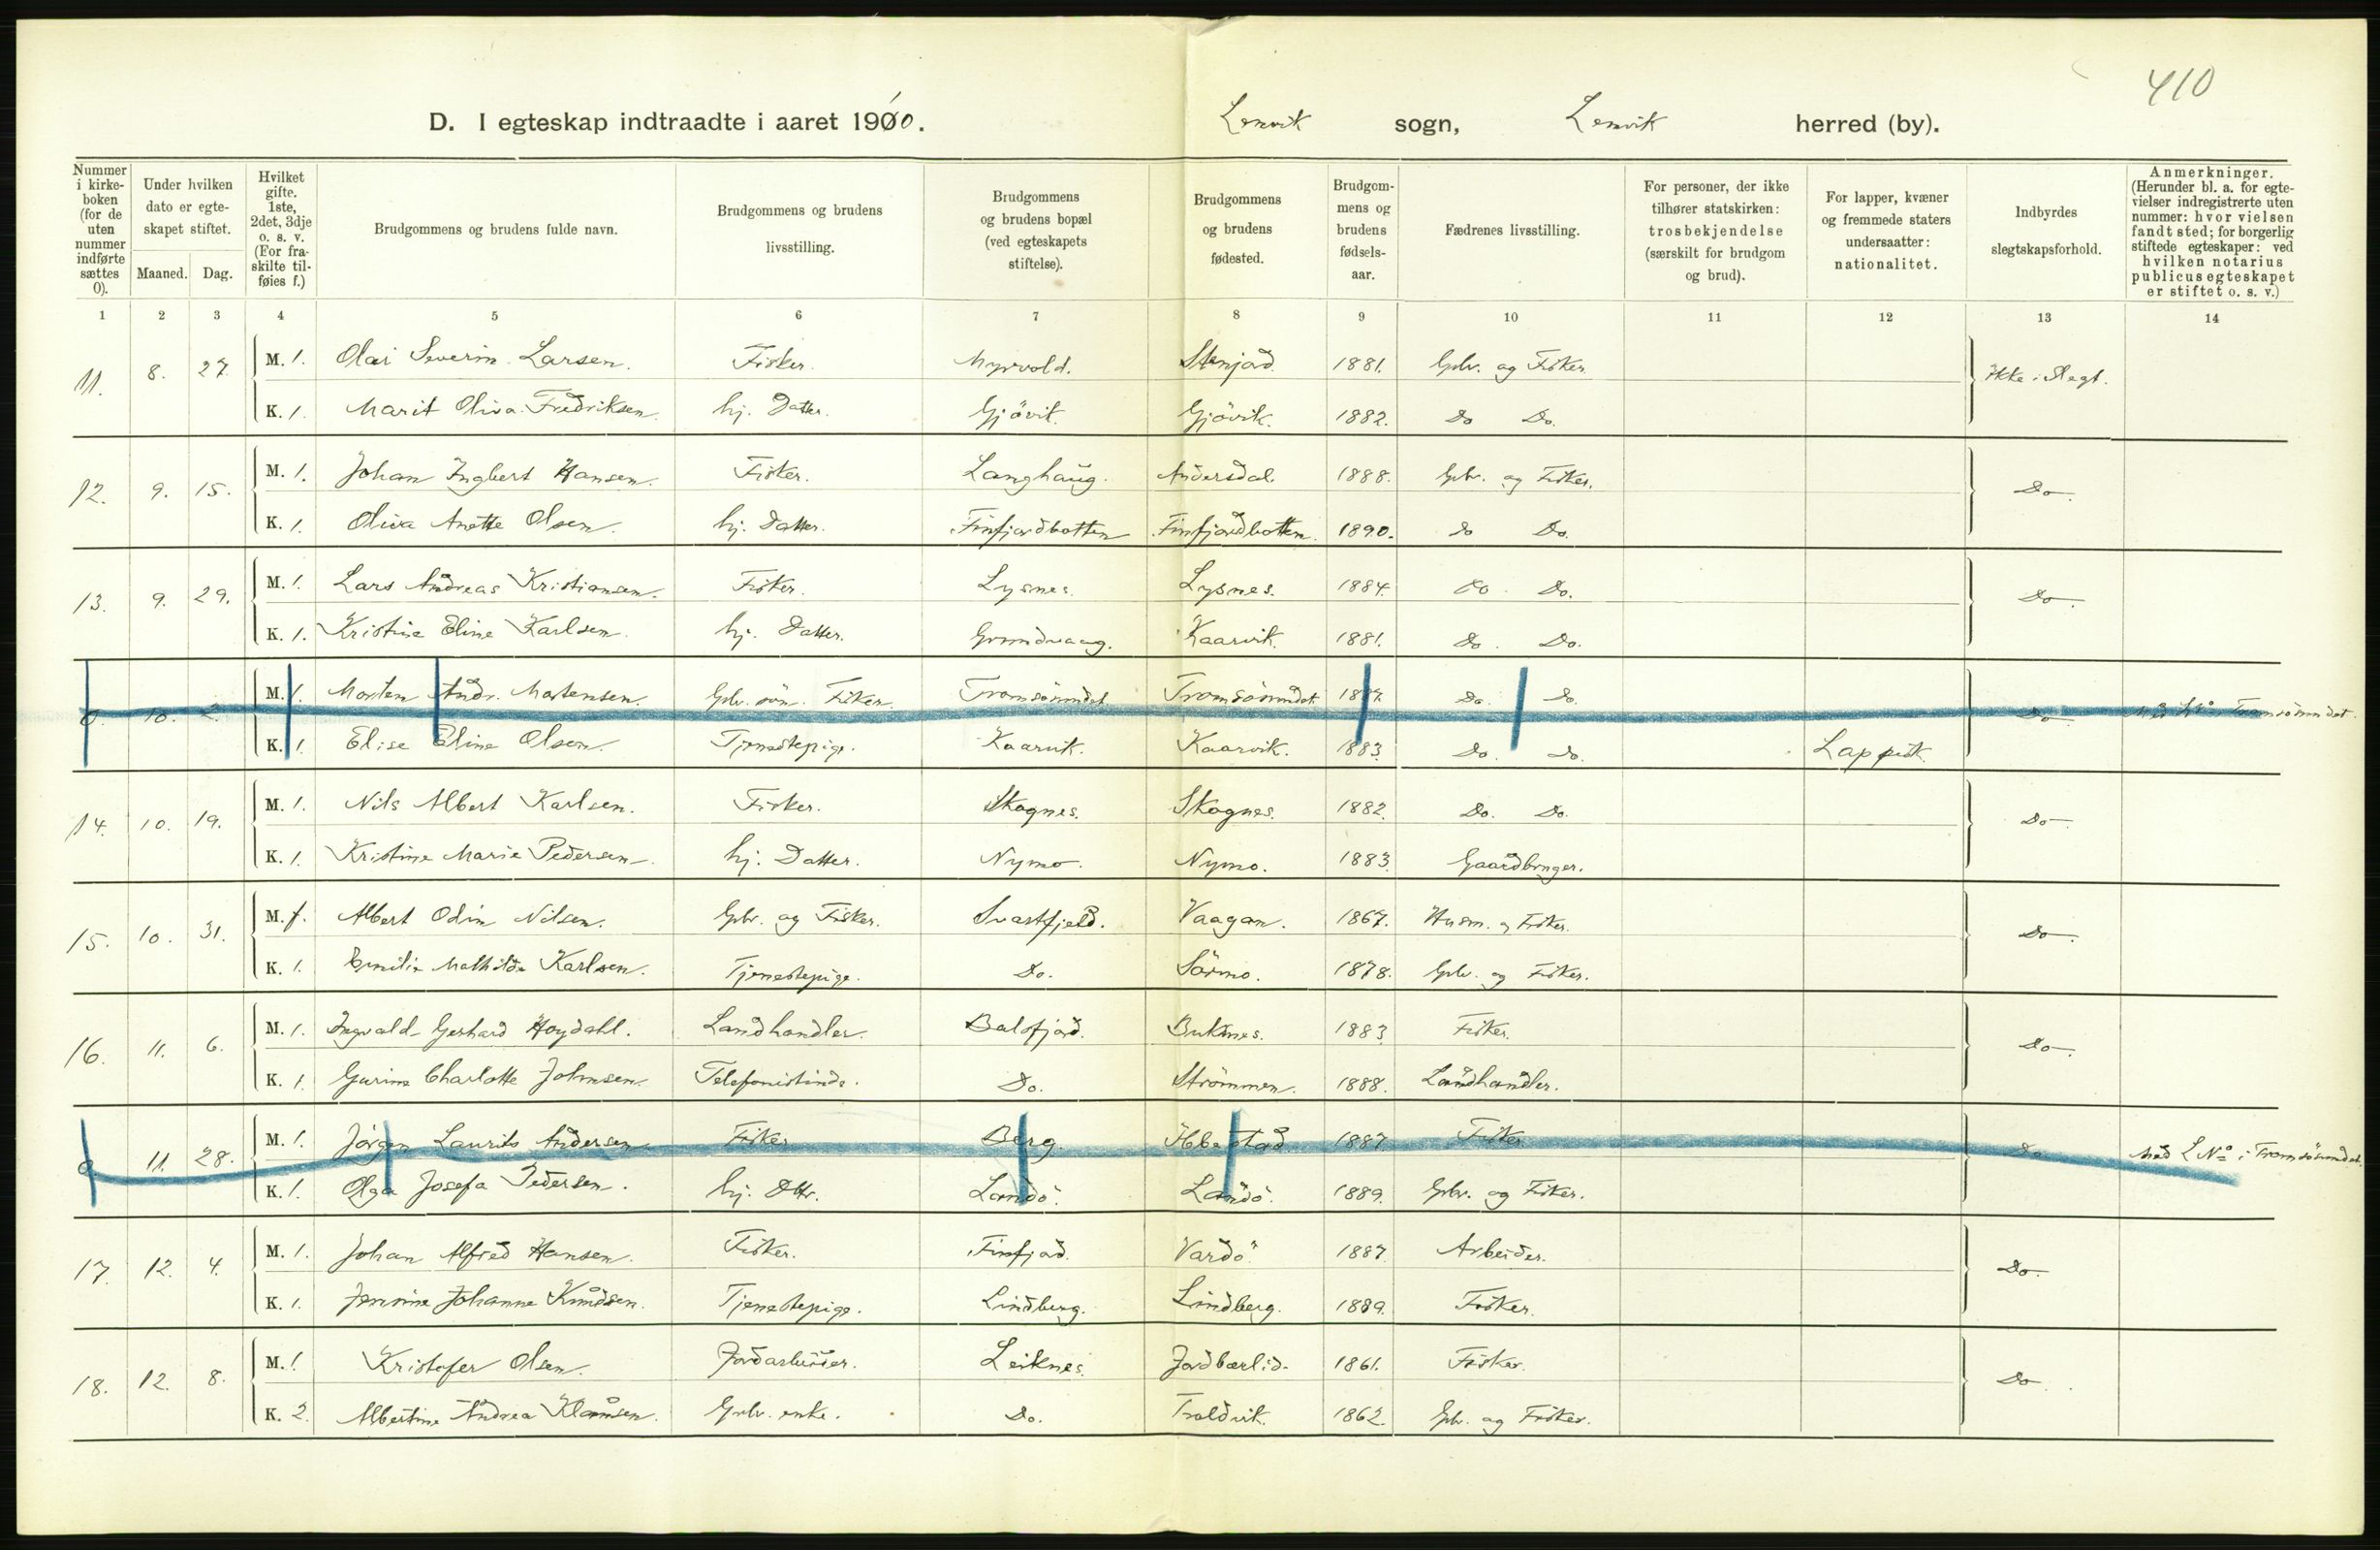 410
D. I egteskap indtraadte i aaret 1910. Lenvik sogn, Lenvik herred (by).
Nummer i kirke-boken (for de uten nummer indførte sættes 0).
Under hvilken dato er egte-skapet stiftet.
Maaned. Dag.
Hvilket gifte. 1ste, 2det, 3dje o. s. v. (For fra-skilte til-føies f.)
Brudgommens og brudens fulde navn.
Brudgommens og brudens livsstilling.
Brudgommens og brudens bopæl (ved egteskapets stiftelse).
Brudgommens og brudens fødested.
Brudgom-mens og brudens fødsels-aar.
Fædrenes livsstilling.
For personer, der ikke tilhører statskirken: trosbekjendelse (særskilt for brudgom og brud).
For lapper, kvæner og fremmede staters undersaatter: nationalitet.
Indbyrdes slegtskapsforhold.
Anmerkninger. (Herunder bl. a. for egte-vielser indregistrerte uten nummer: hvor vielsen fandt sted; for borgerlig stiftede egteskaper: ved hvilken notarius publicus egteskapet er stiftet o. s. v.)
1 2 3 4 5 6 7 8 9 10 11 12 13 14
11. 8. 27. M. 1. Olai Severin Larsen. Fisker. Myrvold. Stenjord. 1881. Gbr. og Fisker. Ikke i Slegt.
K. 1. Marit Oliva Fredriksen. hj. Datter. Gjövik. Gjövik. 1882. Do Do.
12. 9. 15. M. 1. Johan Ingbert Hansen. Fisker. Langhaug. Andersdal. 1888. Gbr. og Fisker. Do.
K. 1. Oliva Anette Olsen. hj. Datter. Finfjordbotten Finfjordbotten. 1890. Do Do.
13. 9. 29. M. 1. Lars Andreas Kristiansen. Fisker. Lysnes. Lysnes. 1884. Do. Do. Do.
K. 1. Kristine Eline Karlsen. hj. Datter. Grundvaag. Kaarvik. 1881. Do. Do.
0. 10. 2. M. 1. Morten Andr. Mortensen. Gbr. sön. Fisker. Tromsösundet Tromsösundet Do. Do. Do Tromsösundet.
K. 1. Elise Eline Olsen. Tjenestepige. Kaarvik. Kaarvik. 1883. Do. Do. Lappisk.
14. 10. 19. M. 1. Nils Albert Karlsen. Fisker. Skognes. Skognes. 1882. Do. Do. Do.
K. 1. Kristine Marie Pedersen. hj. Datter. Nymo. Nymo. 1883. Gaardbruger.
15. 10. 31. M. f. Albert Odin Nilsen. Gbr. og Fisker. Svartfjeld. Vaagan. 1867. Husm. og Fisker. Do.
K. 1. Emilie Mathilde Karlsen. Tjenestepige. Do. Sörmo. 1878. Gbr. og Fisker.
16. 11. 6. M. 1. Ingvald Gerhard Hoydahl. Landhandler. Balsfjord. Buknes. 1883. Fisker. Do.
K. 1. Gurine Charlotte Johnsen. Telefonistinde. Do. Strömmen. 1888. Landhandler.
0 11. 28. M. 1. Jörgen Laurits Andersen Fisker Berg. Ibbestad 1887. Fisker Do Med L No i Tromsösundet.
K. 1. Olga Josefa Pedersen. hj. Dttr. Landö. Landö. 1889. Gbr. og Fisker.
17. 12. 4. M. 1. Johan Alfred Hansen. Fisker. Finfjord. Vardö. 1887. Arbeider. Do.
K. 1. Jennine Johanne Knudsen. Tjenestepige. Lindberg. Lindberg. 1889. Fisker.
18. 12. 8. M. 1. Kristofer Olsen. Jordarbeider. Leiknes. Jordbærlid. 1861. Fisker. Do.
K. 2. Albertine Andrea Klausen. Gbr. enke. Do. Troldvik. 1862. Gbr. og Fisker.